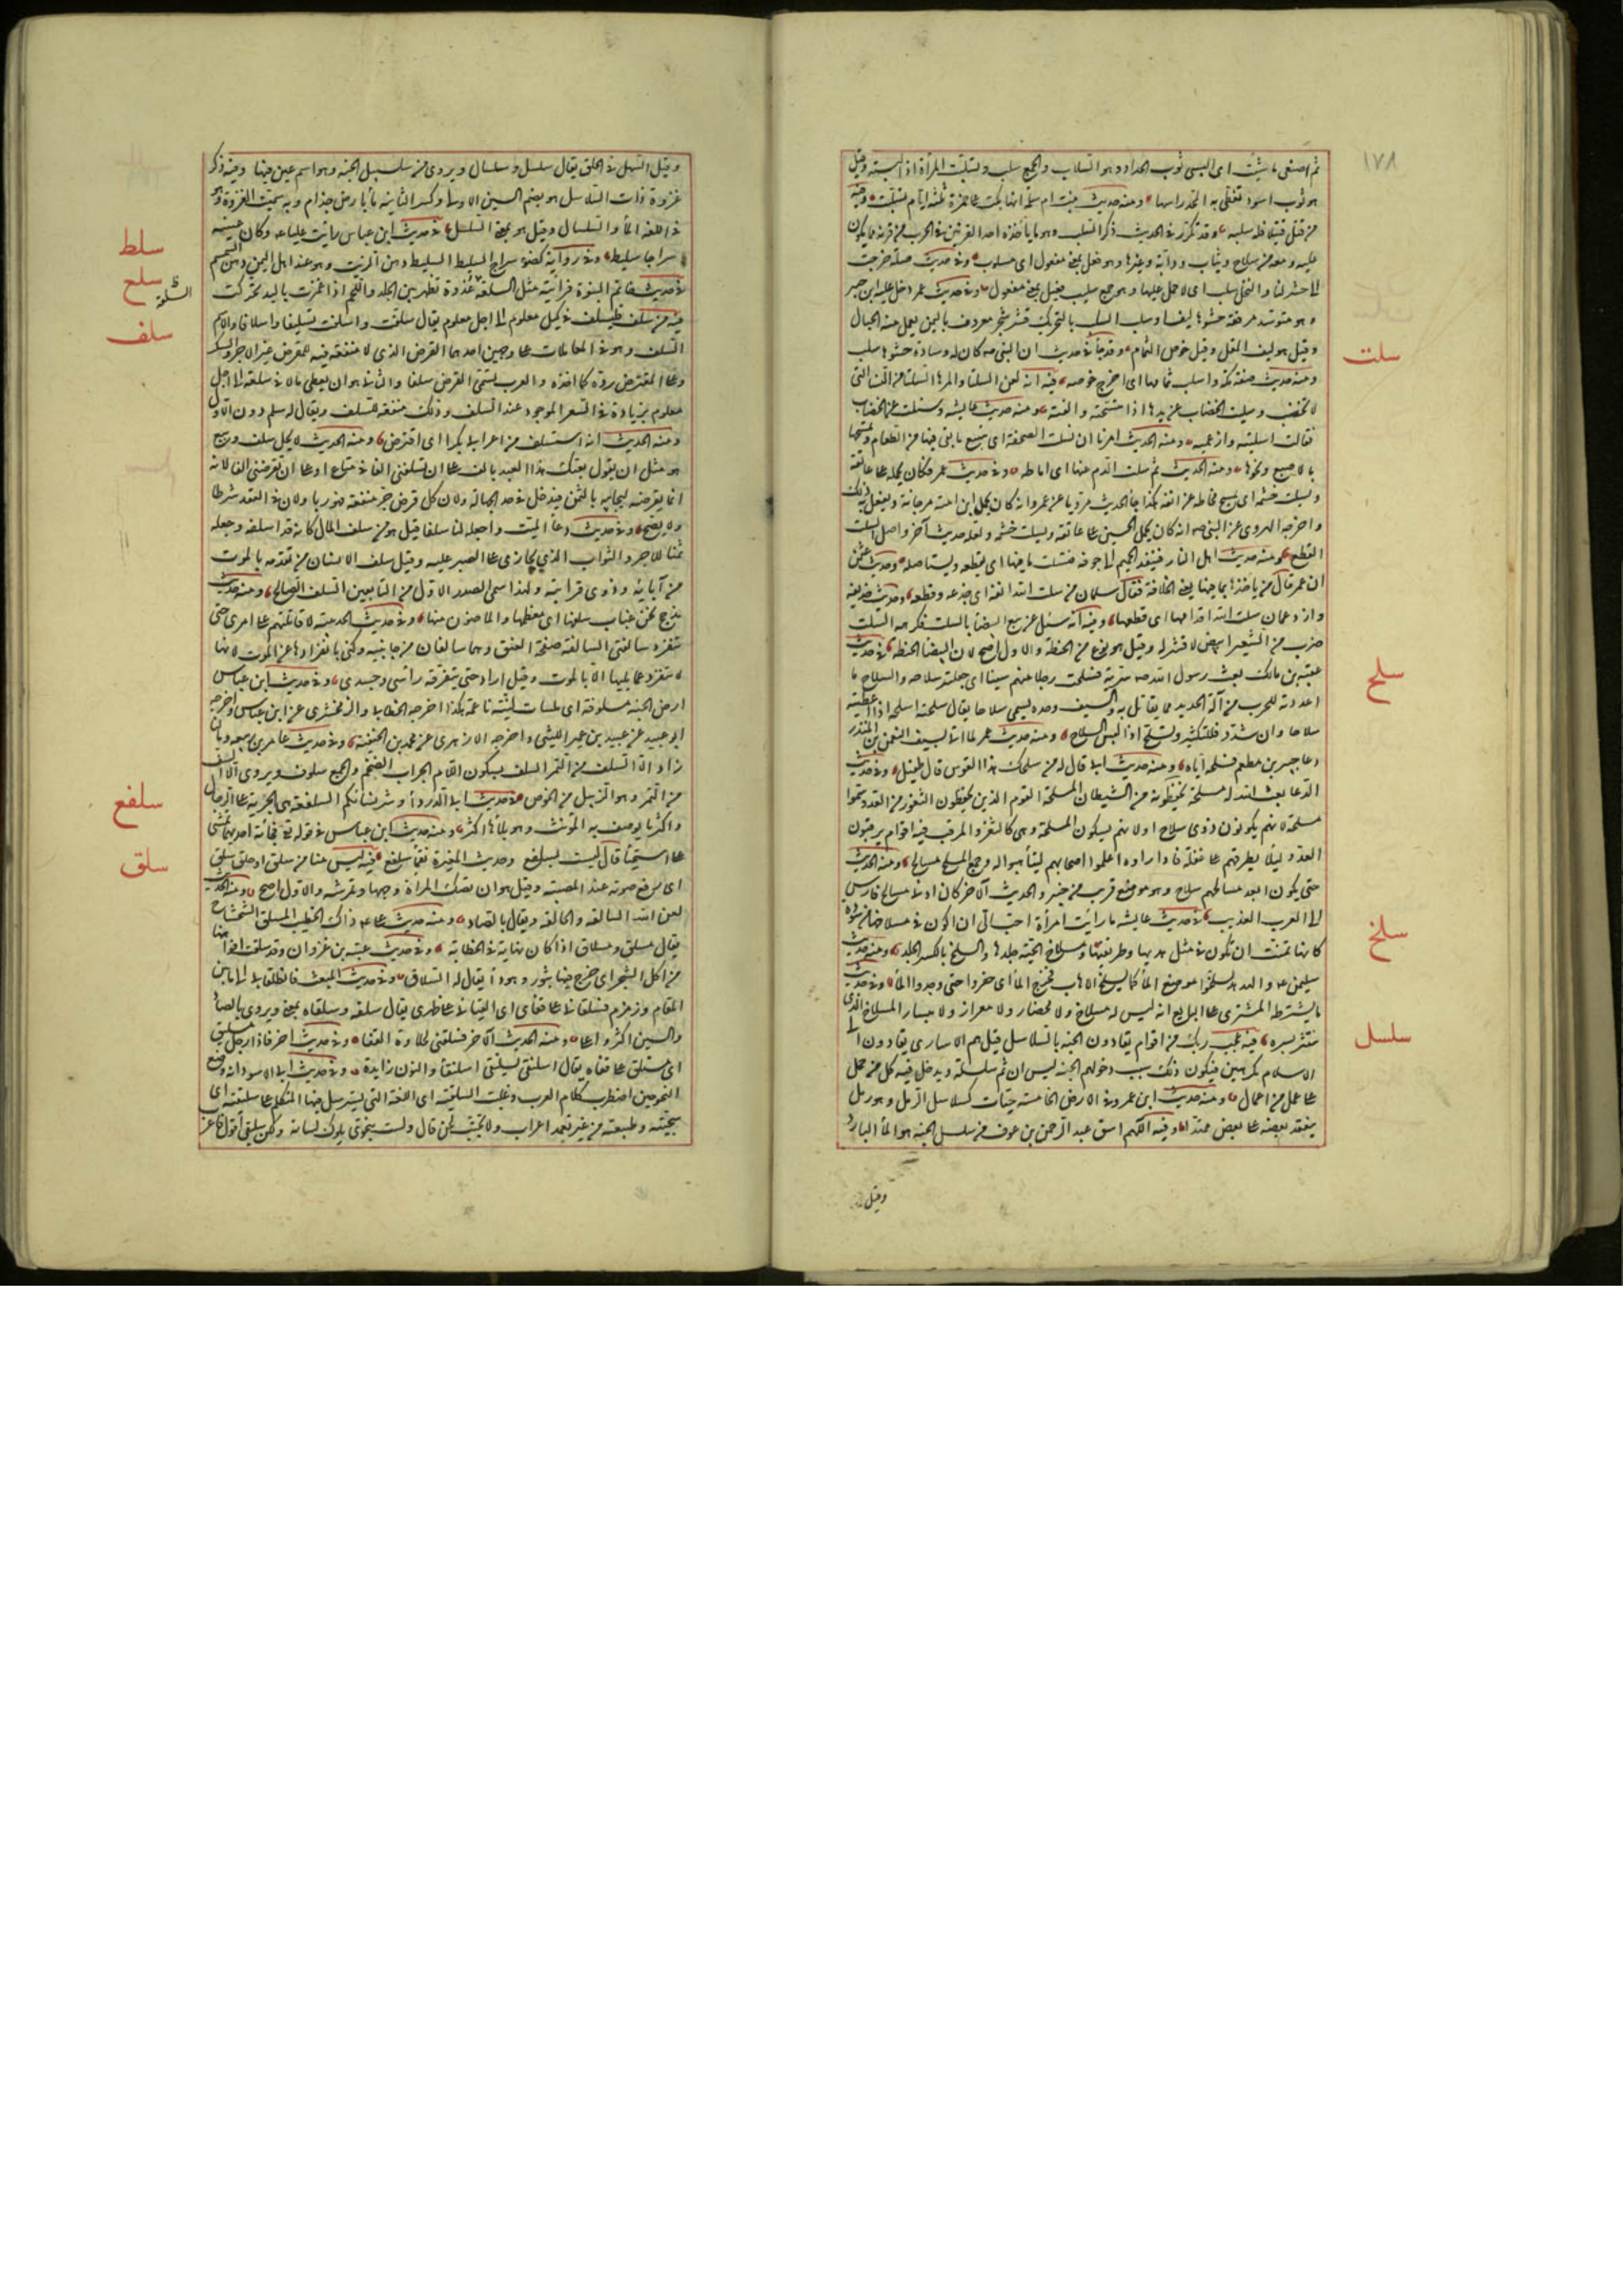 ١٧٨
ثم اصنعى ما شئت اى البسى ثوب الحداد وهو السلاب والجمع سلب وتسلبت المرأة اذا لبسته وقيل
هو ثوب اسود تغطى به المحد راسها ومنه حديث بنت ام سلمة انها بكت على حمزة ثلثة ايام وتسلبت وفيه
من قتل قتيلا فله سلبه وقد تكرر فى الحديث ذكر السلب وهو ما يأخذه احد القرنين فى الحرب من قرنه مما يكون
عليه ومعه من سلاح وثياب ودابة وغيرها وهو فعل بمعنى مفعول اى مسلوب وفى حديث صلة خرجت
الى حشر لنا والنخل سلب اى لا حمل عليها وهو جمع سليب فعيل بمعنى مفعول وفى حديث ابن عمر دخل عليه ابن جبير
وهو متوسد مرفقة حشوها ليف او سلب السلب بالتحريك قشر شجر معروف باليمن يعمل منه الحبال
وقيل هو ليف المقل وقيل خوص الثمام وقد جاء فى حديث ان النبى صم كان له وسادة حشوها سلب
سلت
ومنه حديث صفة مكة واسلب ثمامها اى اخرج خوصه فيه انه لعن السلتاء والمرهاء السلتاء من النساء التى
لا تختضب وسلت الخضاب عن يدها اذا مسحته والقته ومنه حديث عايشة وسئلت عن الخضاب
فقالت اسلتيه وارغميه ومنه الحديث امرنا ان نسلت الصحفة اى نتتبع ما بقى فيها من الطعام ونمسحها
بالاصبع ونحوها ومنه الحديث ثم سلت الدم عنها اى اماطه وفى حديث عمر فكان يحمله على عاتقه
ويسلت خشمه اى يمسح مخاطه عن انفه هكذا جاء الحديث مرويا عن عمر وانه كان يحمل ابن امته مرجانة ويفعل به ذلك
واخرجه الهروى عن النبى صم انه كان يحمل الحسين على عاتقه ويسلت خشمه ولعله حديث آخر واصل السلت
القطع ومنه حديث اهل النار فينفذ الحميم الى جوفه فيسلت ما فيها اى يقطعه ويستاصله وحديث سلمان
ان عمر قال من ياخذها بما فيها يعنى الخلافة فقال سلمان من سلت الله انفه اى جذعه وقطعه وحديث حذيفة
وازد عمان سلت الله اقدامها اى قطعها وفيه انه سئل عن بيع البيضاء بالسلت فكرهه السلت
ضرب من الشعير ابيض لا قشر له وقيل هو نوع من الحنطة والاول اصح لان البيضاء الحنطة
سلح
فى حديث
عقبة بن مالك بعث رسول الله صم سرية فسلحت رجلا منهم سيفا اى جعلته سلاحه والسلاح ما
اعددته للحرب من آلة الحديد مما يقاتل به والسيف وحده يسمى سلاحا يقال سلحته اسلحه اذا اعطيته
سلاحا وان شدد فللتكثير وتسلح اذا لبس السلاح ومنه حديث عمر لما اتى بسيف النعمن بن المنذر
دعا جبير بن مطعم فسلحه اياه ومنه حديث ابى قال له من سلحك هذا القوس قال طفيل وفى حديث
الدعا بعث الله له مسلحة يحفظونه من الشيطان المسلحة القوم الذين يحفظون الثغور من العدو وسموا
مسلحة لانهم يكونون ذوى سلاح او لانهم يسكون المسلحة وهى كالثغر والمرقب فيه اقوام يرقبون
العدو ليلا يطرقهم على غفلة فاذا راوه اعلموا اصحابهم ليتأهبوا له وجمع المسلح مسالح ومنه الحديث
حتى يكون ابعد مسالحهم سلاح وهو موضع قريب من خيبر والحديث الآخر كان ادنى مسالح فارس
سلخ
الى العرب العذيب فى حديث عايشة ما رأيت امرأة احب الى ان اكون فى مسلاخها من سودة
كانها تمنت ان تكون فى مثل هديها وطريقتها ومسلاخ الحية جلدها والسلخ بالكسر الجلد ومنه حديث
سليمن عم والهدهد فسلخوا موضع الماء كما يسلخ الاهاب فخرج الماء اى حفروا حتى وجدوا الماء وفى حديث
ما يشترطه المشترى على البايع انه ليس له مسلاخ ولا مخضار ولا معرار ولا مبسار المسلاخ الذى
سلسل
ينتثر بسره فيه عجب ربك من اقوام يقادون الى الجنة بالسلاسل قيل هم الاسارى يقادون الى
الاسلام مكرهين فيكون ذلك سبب دخولهم الجنة ليس ان ثم سلسلة ويدخل فيه كل من حمل
على عمل من اعمال ومنه حديث ابن عمرو فى الارض الخامسة حيات كسلاسل الرمل وهو رمل
ينعقد بعضه على بعض ممتدا وفيه اللهم اسق عبد الرحمن بن عوف من سلسل الجنة هو الماء البارد
وقيل
وقيل السهل فى الحلق يقال سلسل وسلسال ويروى من سلسبيل الجنة وهو اسم عين فيها وفيه ذكر
غزوة ذات السلاسل هو بضم السين الاولى وكسر الثانية ماء بارض جذام وبه سميت الغزوة وهو
سلط
فى اللغة الماء والسلسال وقيل هو بمعنى السلسل فى حديث ابن عباس رايت عليا عم وكان عينيه
سراجا سليط وفى رواية كضوء سراج السليط السليط دهن الزيت وهو عند اهل اليمن دهن السمسم
سلع
السلعة
فى حديث خاتم النبوة فرأيته مثل السلعة غدة تظهر بين الجلد واللحم اذا غمزت باليد تحركت
سلف
فيه من سلف فليسلف فى كيل معلوم الى اجل معلوم يقال سلفت واسلفت تسليفا واسلافا والاسم
السلف وهو فى المعاملات على وجهين احدهما القرض الذى لا منفعة فيه للمقرض غير الاجر والشكر
وعلى المقترض رده كما اخذه والعرب تسمى القرض سلفا والثانى هو ان يعطى مالا فى سلعة الى اجل
معلوم بزيادة فى السعر الموجود عند السلف وذلك منفعة للمسلف ويقال له سلم دون الاول
ومنه الحديث انه استسلف من اعرابى بكرا اى اقترض ومنه الحديث لا يحل سلف وبيع
هو مثل ان يقول بعتك هذا العبد بالف على ان تسلفنى الفا فى متاع او على ان تقرضنى الفا لانه
انما يقرضه ليحابيه بالثمن فيدخل فى حد الجهالة ولان كل قرض جر منفعة فهو ربا ولان فى العقد شرطا
ولا يصح وفى حديث دعاء الميت واجعله لنا سلفا قيل هو من سلف المال كانه قد اسلفه وجعله
ثمنا للاجر والثواب الذى يجازى على الصبر عليه وقيل سلف الانسان من تقدمه بالموت
من آبائه وذوى قرابته ولهذا سمى الصدر الاول من التابعين السلف الصالح ومنه حديث
مذحج نحن عباب سلفها اى معظمها والماضون منها وفى حديث الحديبية لاقاتلنهم على امرى حتى
تنفرد سالفتى السالفة صفحة العنق وهما سالفتان من جانبيه وكنى بانفرادها عن الموت لانها
لا تنفرد عما يليها الا بالموت وقيل اراد حتى يتفرق رأسى وجسدى وفى حديث ابن عباس
ارض الجنة مسلوفة اى ملساء لينة ناعمة هكذا اخرجه الخطابى والزمخشرى عن ابن عباس واخرجه
ابو عبيد عن عبيد بن عمير الليثى واخرجه الازهرى عن محمد بن الحنفية وفى حديث عامر بن ربيعة وما لنا
زاد الا السلف من التمر السلف بسكون اللام الجراب الضخم والجمع سلوف ويروى الا السف
سلفع
من التمر وهو الزبيل من الخوص فى حديث ابى الدرداء وشر نسائكم السلفعة هى الجرية على الرجال
واكثر ما يوصف به المؤنث وهو بلا هاء اكثر ومنه حديث ابن عباس فى قوله تع فجائته احديهما تمشى
سلق
على استحياء قال ليست بسلفع وحديث المغيرة فقماء سلفع فيه ليس منا من سلق او حلق سلق
اى رفع صوته عند المصيبة وقيل هو ان تصك المرأة وجهها وتمرشه والاول اصح ومنه الحديث
لعن الله السالقة والحالقة ويقال بالصاد ومنه حديث على عم ذاك الخطيب المسلق الشحشاح
يقال مسلق ومسلاق اذا كان نهاية فى الخطابة وفى حديث عتبة بن غزوان وقد سلقت افواهنا
من اكل الشجر اى خرج فيها بثور وهو داء يقال له السلاق وفى حديث المبعث فانطلقا بى الى ما بين
المقام وزمزم فسلقانى على قفاى اى القيانى على ظهرى يقال سلقه وسلقاه بمعنى ويروى بالصاد
والسين اكثر واعلى ومنه الحديث الآخر فسلقنى لحلاوة القفا وفى حديث اخر فاذا رجل مسلنق
اى مستلق على قفاه يقال اسلنقى يسلنقى اسلنقاء والنون زايدة وفى حديث ابى الاسود انه وضع
النحو حين اضطرب كلام العرب وغلبت السليقية اى اللغة التى يسترسل فيها المتكلم على سليقته اى
سجيته وطبيعته من غير تعمد اعراب ولا تجنب لحن قال ولست بنحوى يلوك لسانه ولكن سليقى اقول فاعرب